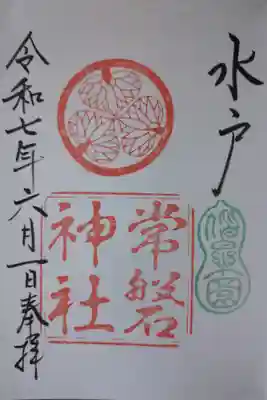 水戸
偕楽園
常磐
神社
令和七年六月一日奉拝